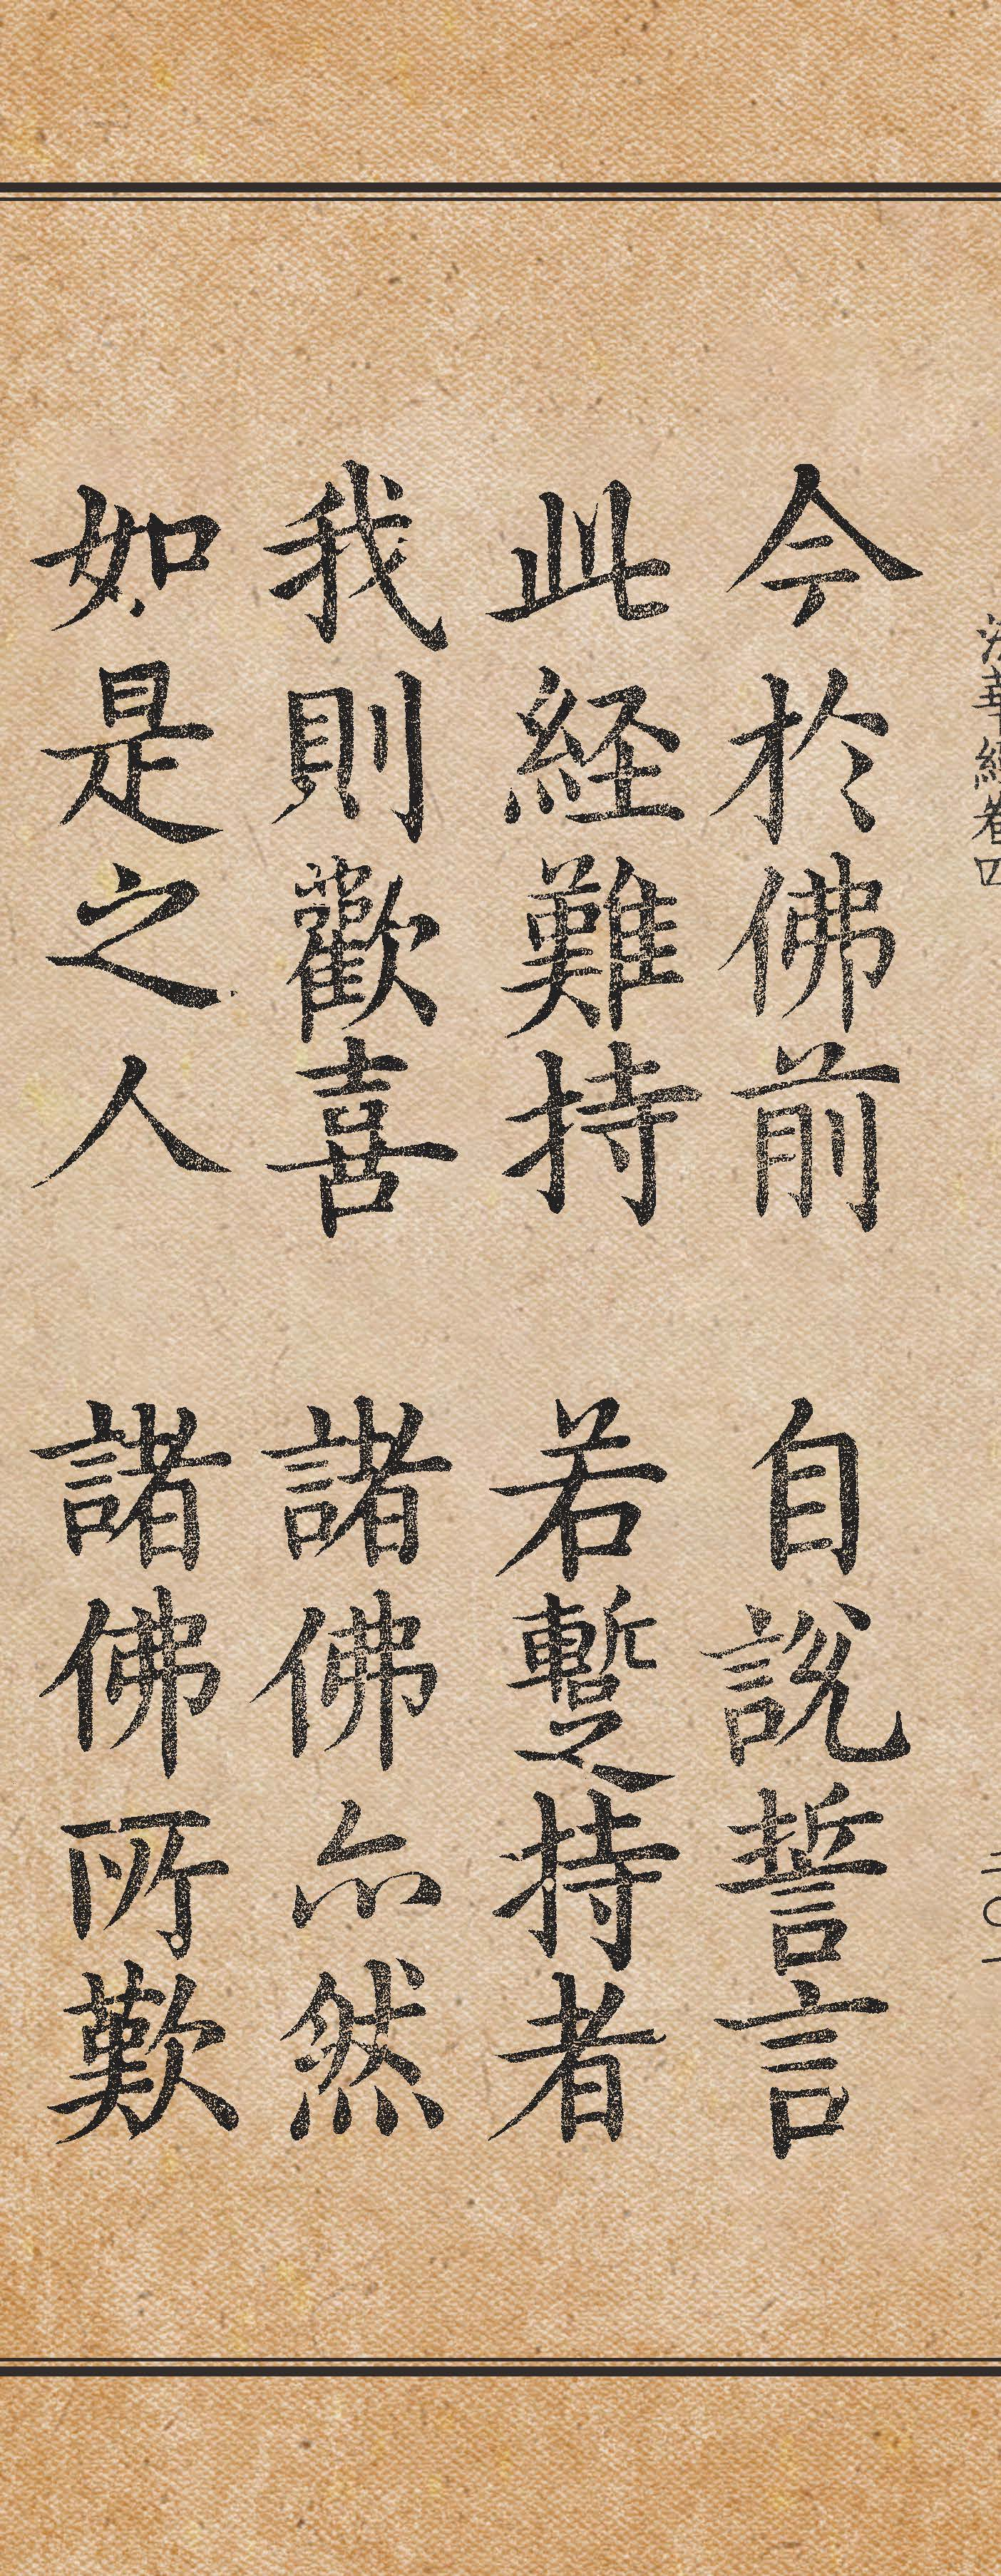 法華經卷四
二〇一
今於佛前 自說誓言
此経難持 若蹔持者
我則歡喜 諸佛亦然
如是之人 諸佛所歎